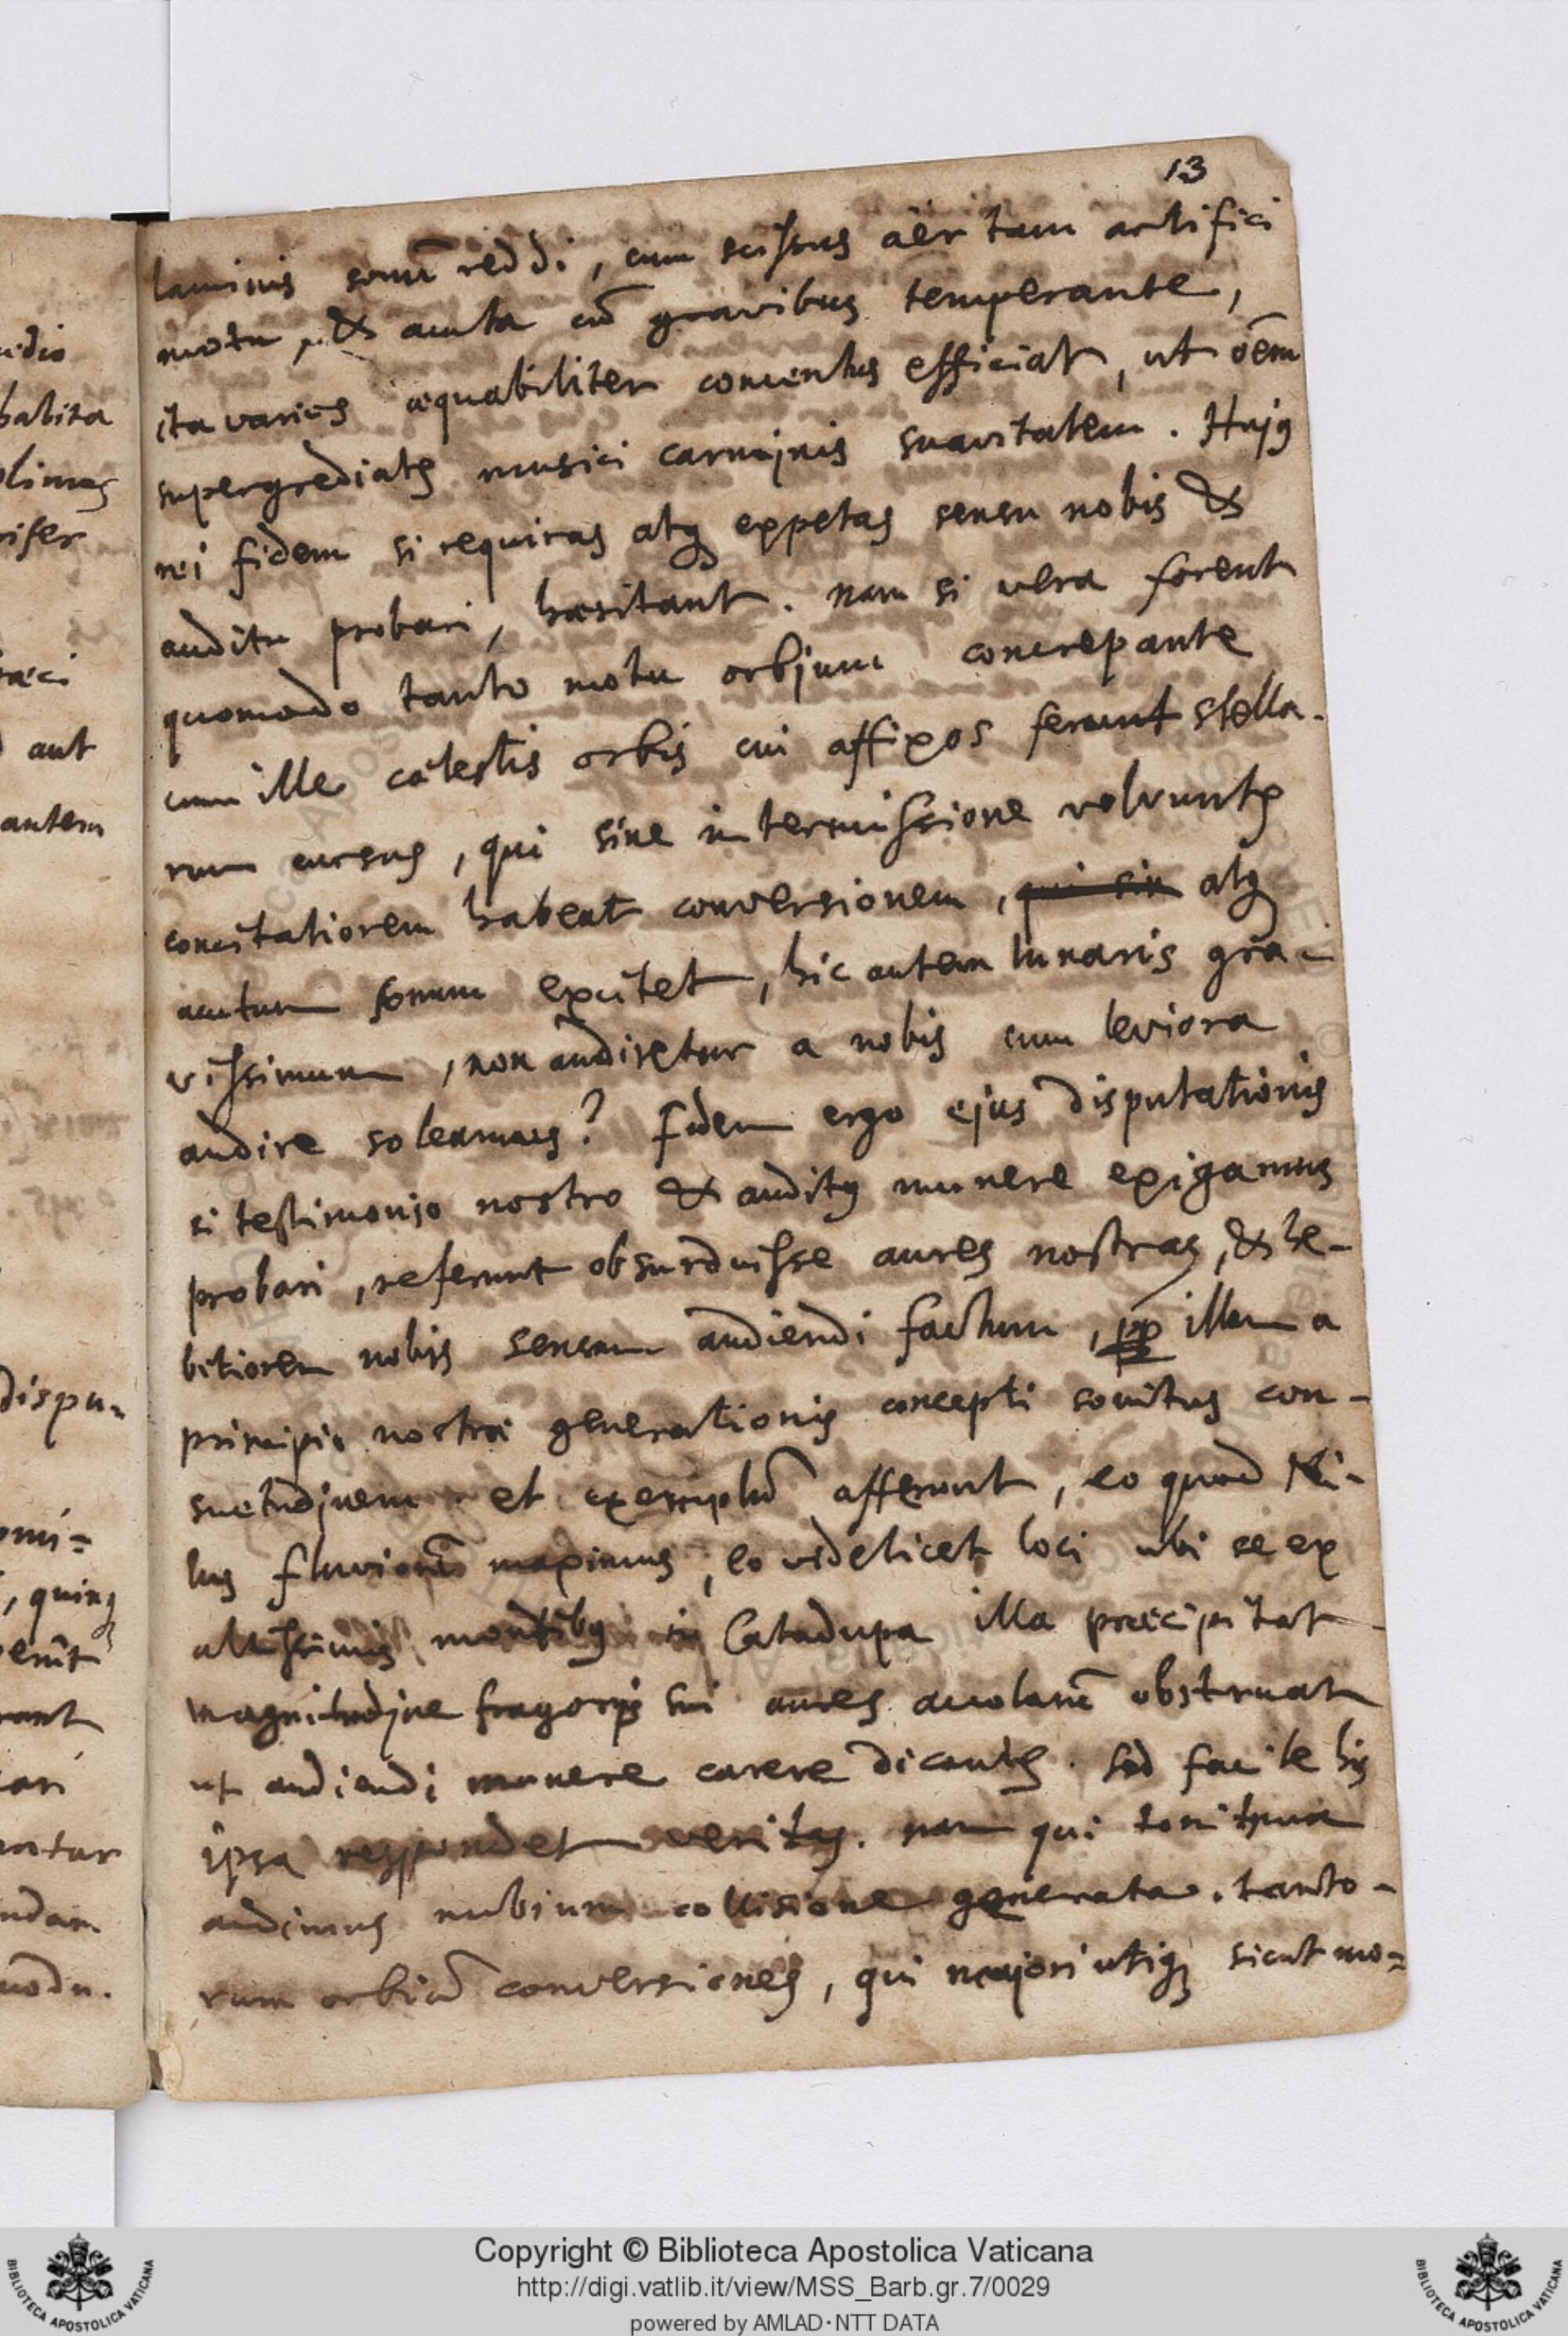 13
laminis sonũ reddi, cum scissus aër tam artifici
motu, & acuta cũ gravibus temperante,
ita varios æquabiliter concentus efficiat, ut oẽm
supergrediatʒ musici carminis suavitatem. Hujꝰ
rei fidem si requiras atqʒ expetas sensu nobis &
auditu probari, hæsitant. nam si vera forent
quomodo tanto motu orbium concrepante
cum ille cælestis orbis cui affixos ferunt stella-
rum cursus, qui sine intermissione volvuntʒ
concitatiorem habeat conversionem, qui sin atqʒ
acutum sonum excitet, hic autem lunaris gra-
vissimum, non audiretur a nobis cum leviora
audire soleamus? Fidem ergo ejus disputationis
si testimonio nostro & auditꝰ munere exigamus
probari, referunt obsurduisse aures nostras, & he-
betiorem nobis sensum audiendi factum, pp illam a
principio nostræ generationis concepti sonitus con-
suetudinem. et exemplũ afferunt, eo quod Ni-
lus fluviorũ maximus, eo videlicet loci ubi se ex
altissimis montibꝰ in Catadupa illa præcipitat
magnitudine fragoris sui aures accolarũ obstruat
ut audiendi munere carere dicantʒ. Sed facile his
ipsa respondet veritas. nam qui tonitrua
audimus nubium collisione generata. tanto-
rum orbiũ conversiones, qui majori utiqʒ sicut mo=
udio
habita
olimus
rifer
aut
autem
dispu-
omi=
, quinqʒ
erũt
rant
cari
untur
ndam
modu.
Copyright © Biblioteca Apostolica Vaticana
http://digi.vatlib.it/view/MSS_Barb.gr.7/0029
powered by AMLAD·NTT DATA
BIBLIOTECA APOSTOLICA VATICANA
BIBLIOTECA APOSTOLICA VATICANA